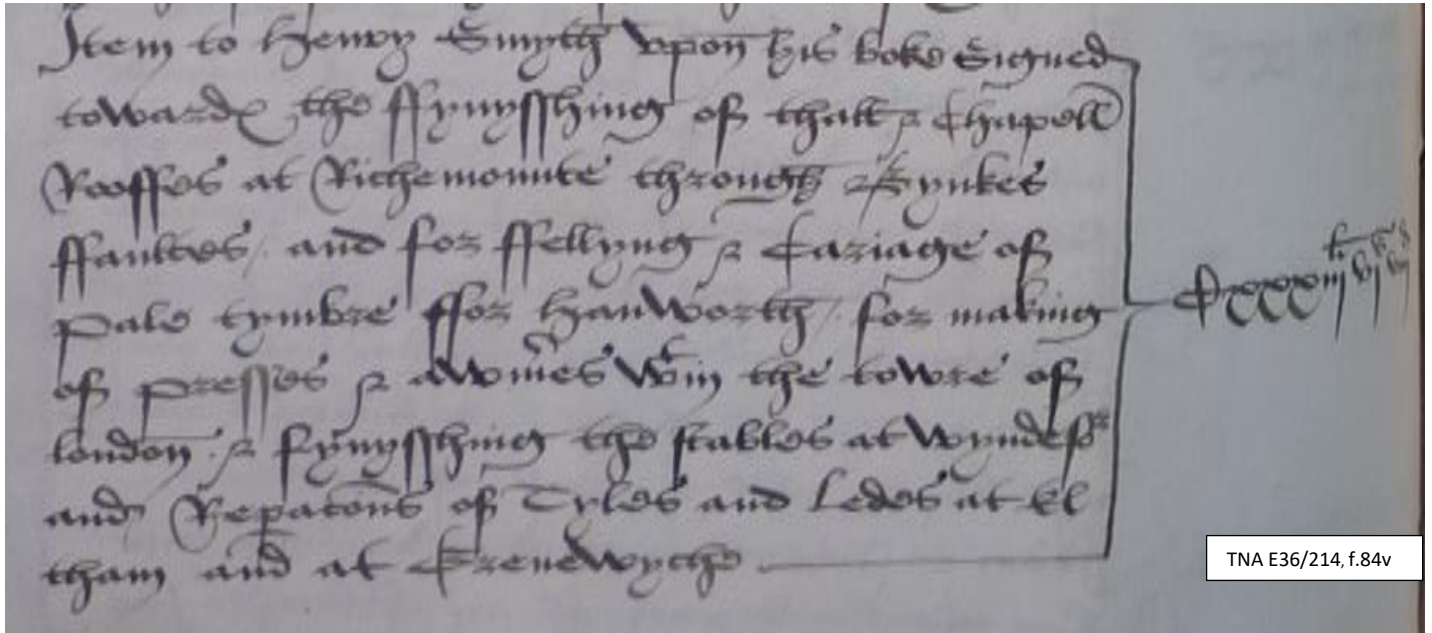 Item to Henry Smyth vpon his boke Signed
toward the ffynysshing of thall & Chapell
Rooffes at Richemounte through
ffaultes / and for ffellyng & Cariage of
pale tymbre ffor Hanworth / for making
of presses & awmes wtin the towre of
london . & fynysshing the stables at wyndesor
and Repacons of Tyles and Ledes at El
tham and at Grenewyche
Cxxxiij li vj s
TNA E36/214, f.84v